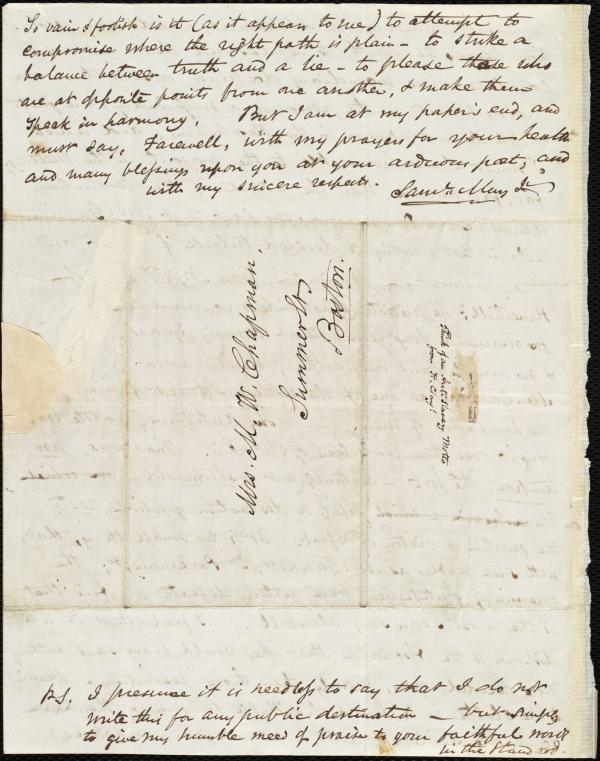 So vain & foolish is it (as it appears to me) to attempt to
compromise where the right path is plain – to strike a
balance between truth and a lie – to please those who
are at opposite points from one another, & make them
speak in harmony. But I am at my paper's end, and
must say, Farewell, with my prayers for your health
and many blessings upon you at your arduous post, and
with my sincere respects. Saml. May Jr.
Mrs. M. W. Chapman,
Summer St.
Boston.
Think of an Anti Slavery Motto
from H. Clay!
P.S. I presume it is needless to say that I do not
write this for any public destination – but simply
to give my humble meed of praise to your faithful work
in the Standard.